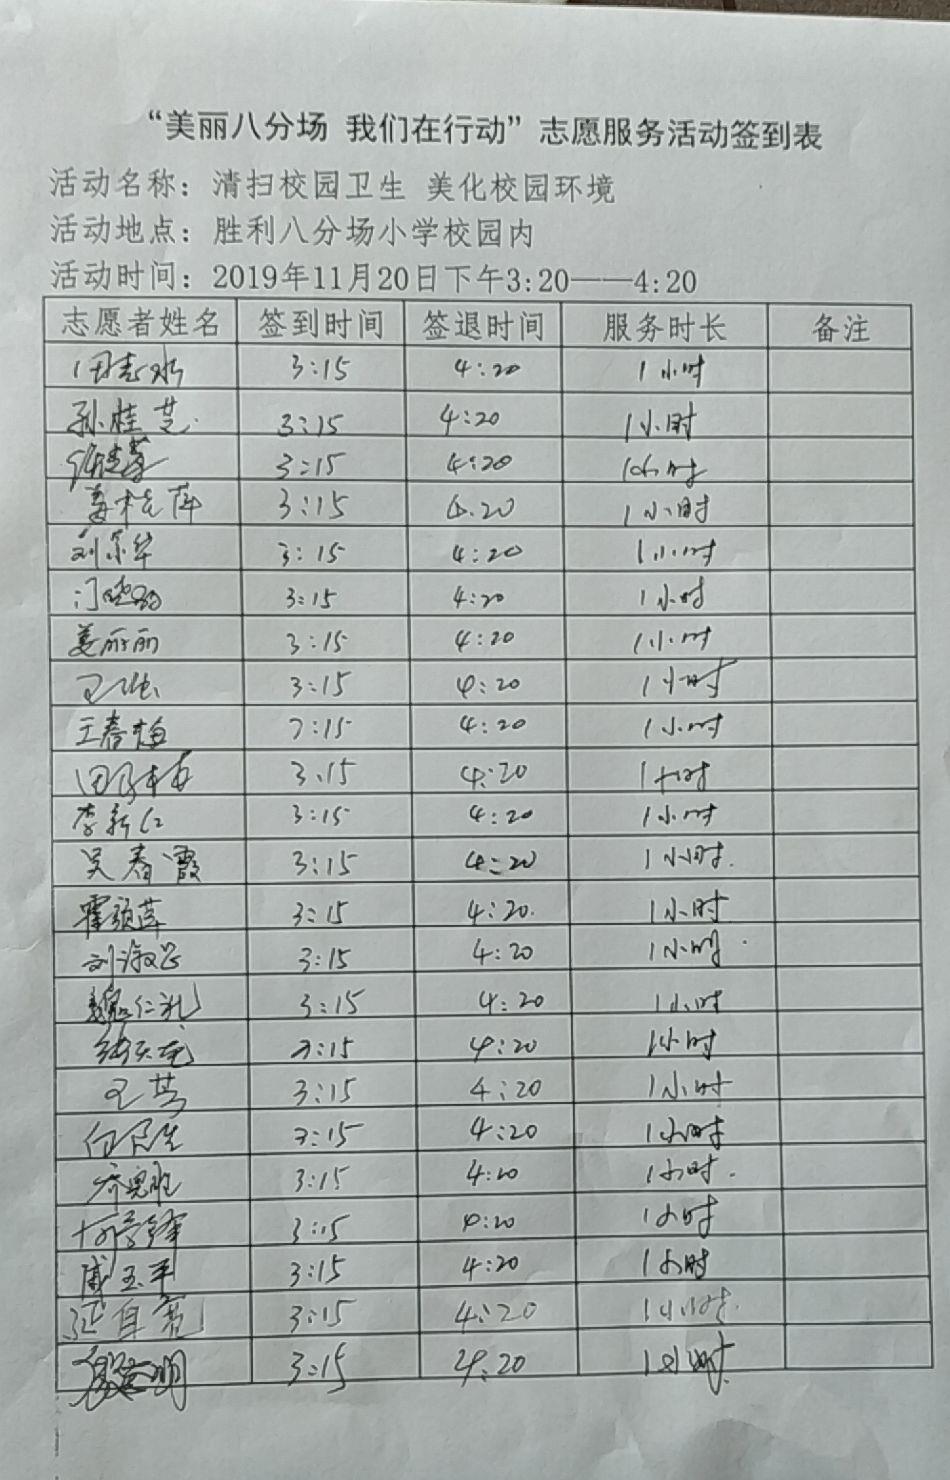 “美丽八分场 我们在行动”志愿服务活动签到表
活动名称：清扫校园卫生 美化校园环境
活动地点：胜利八分场小学校园内
活动时间：2019年11月20日下午3:20——4:20
志愿者姓名 签到时间 签退时间 服务时长 备注
田志水 3:15 4:20 1小时
孙桂芝 3:15 4:20 1小时
3:15 4:20 1小时
姜桂萍 3:15 4:20 1小时
刘宗华 3:15 4:20 1小时
3:15 4:20 1小时
姜丽丽 3:15 4:20 1小时
3:15 4:20 1小时
王春梅 3:15 4:20 1小时
3:15 4:20 1小时
李新仁 3:15 4:20 1小时
吴春霞 3:15 4:20 1小时.
3:15 4:20. 1小时
3:15 4:20 1小时
魏仁礼 3:15 4:20 1小时
3:15 4:20 1小时
王芳 3:15 4:20 1小时
3:15 4:20 1小时
3:15 4:20 1小时.
3:15 4:20 1小时
玉平 3:15 4:20 1小时
3:15 4:20 1小时.
3:15 4:20 1小时